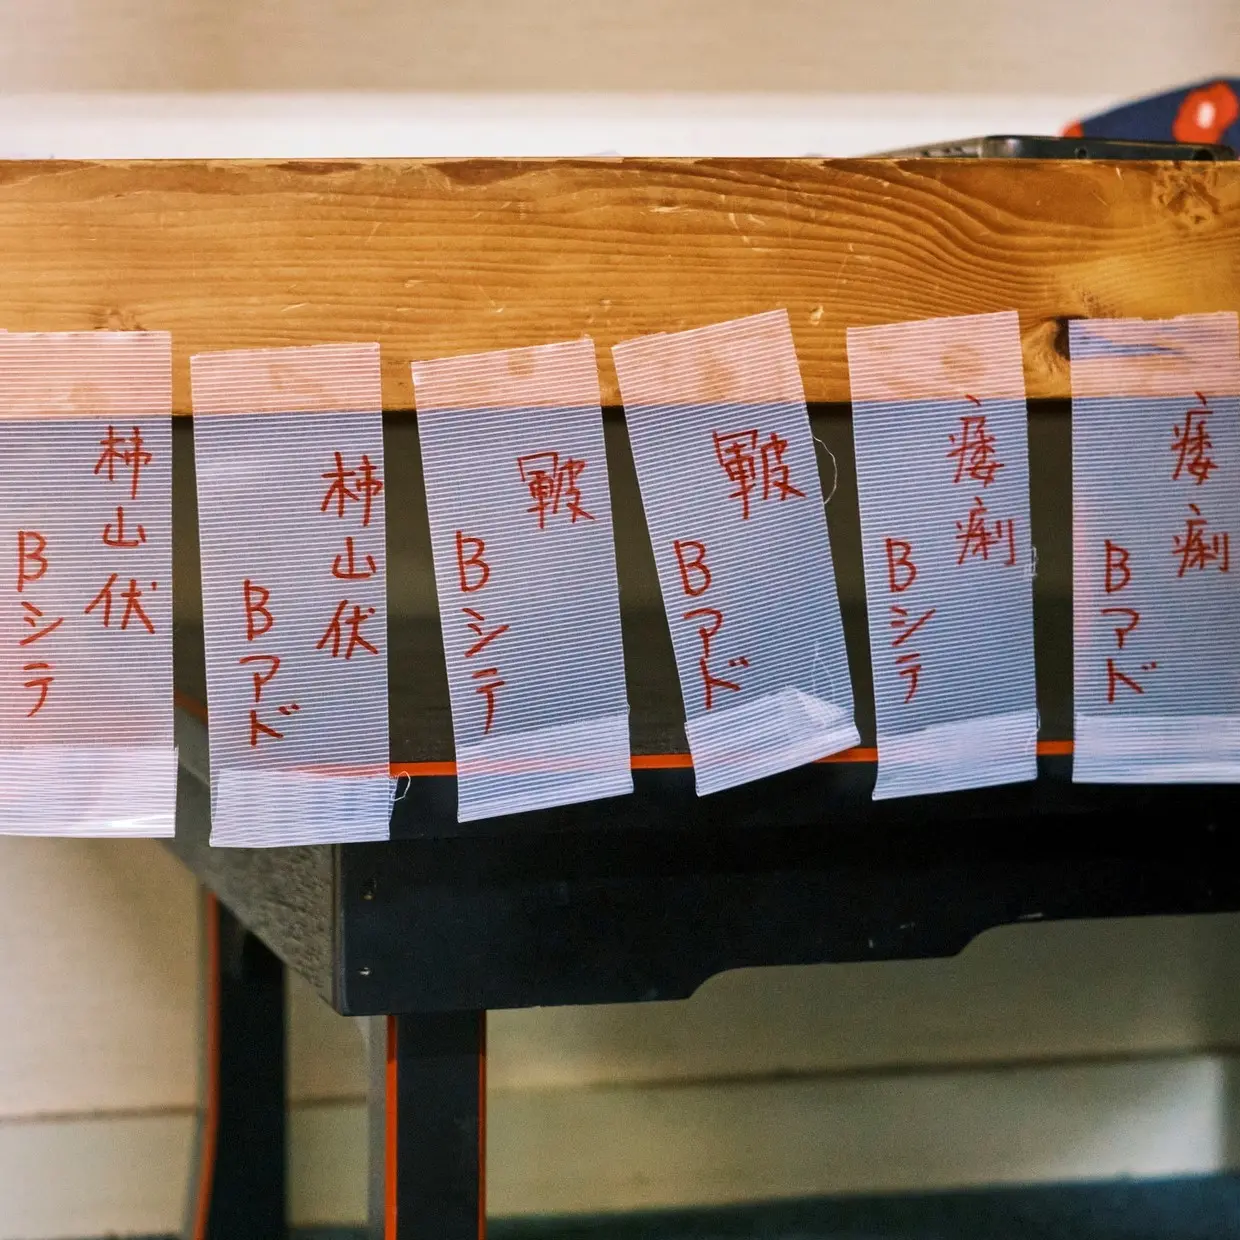 柿山伏
Bシテ
柿山伏
Bアド
皸
Bシテ
皸
Bアド
痿痢
Bシテ
痿痢
Bアド